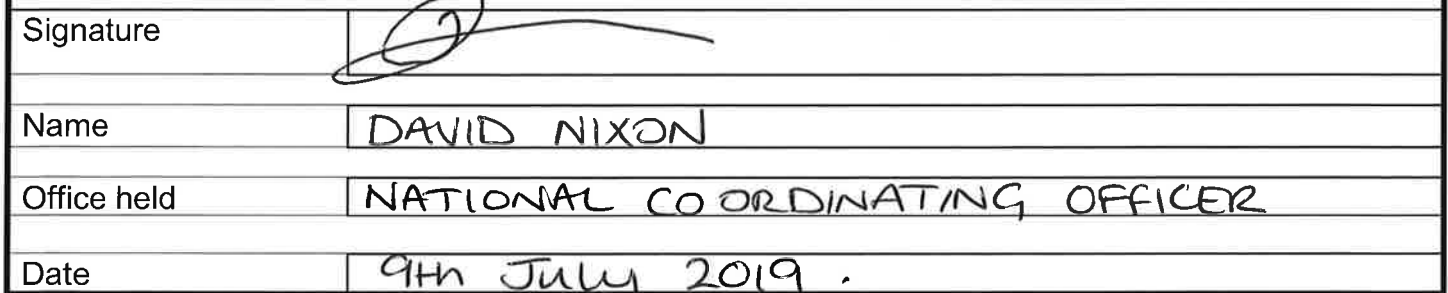 Signature
Name DAVID NIXON
Office held NATIONAL CO ORDINATING OFFICER
Date 9th July 2019 .